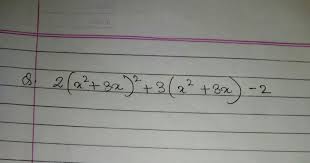 Q. 2(x²+3x)²+3(x²+3x)-2